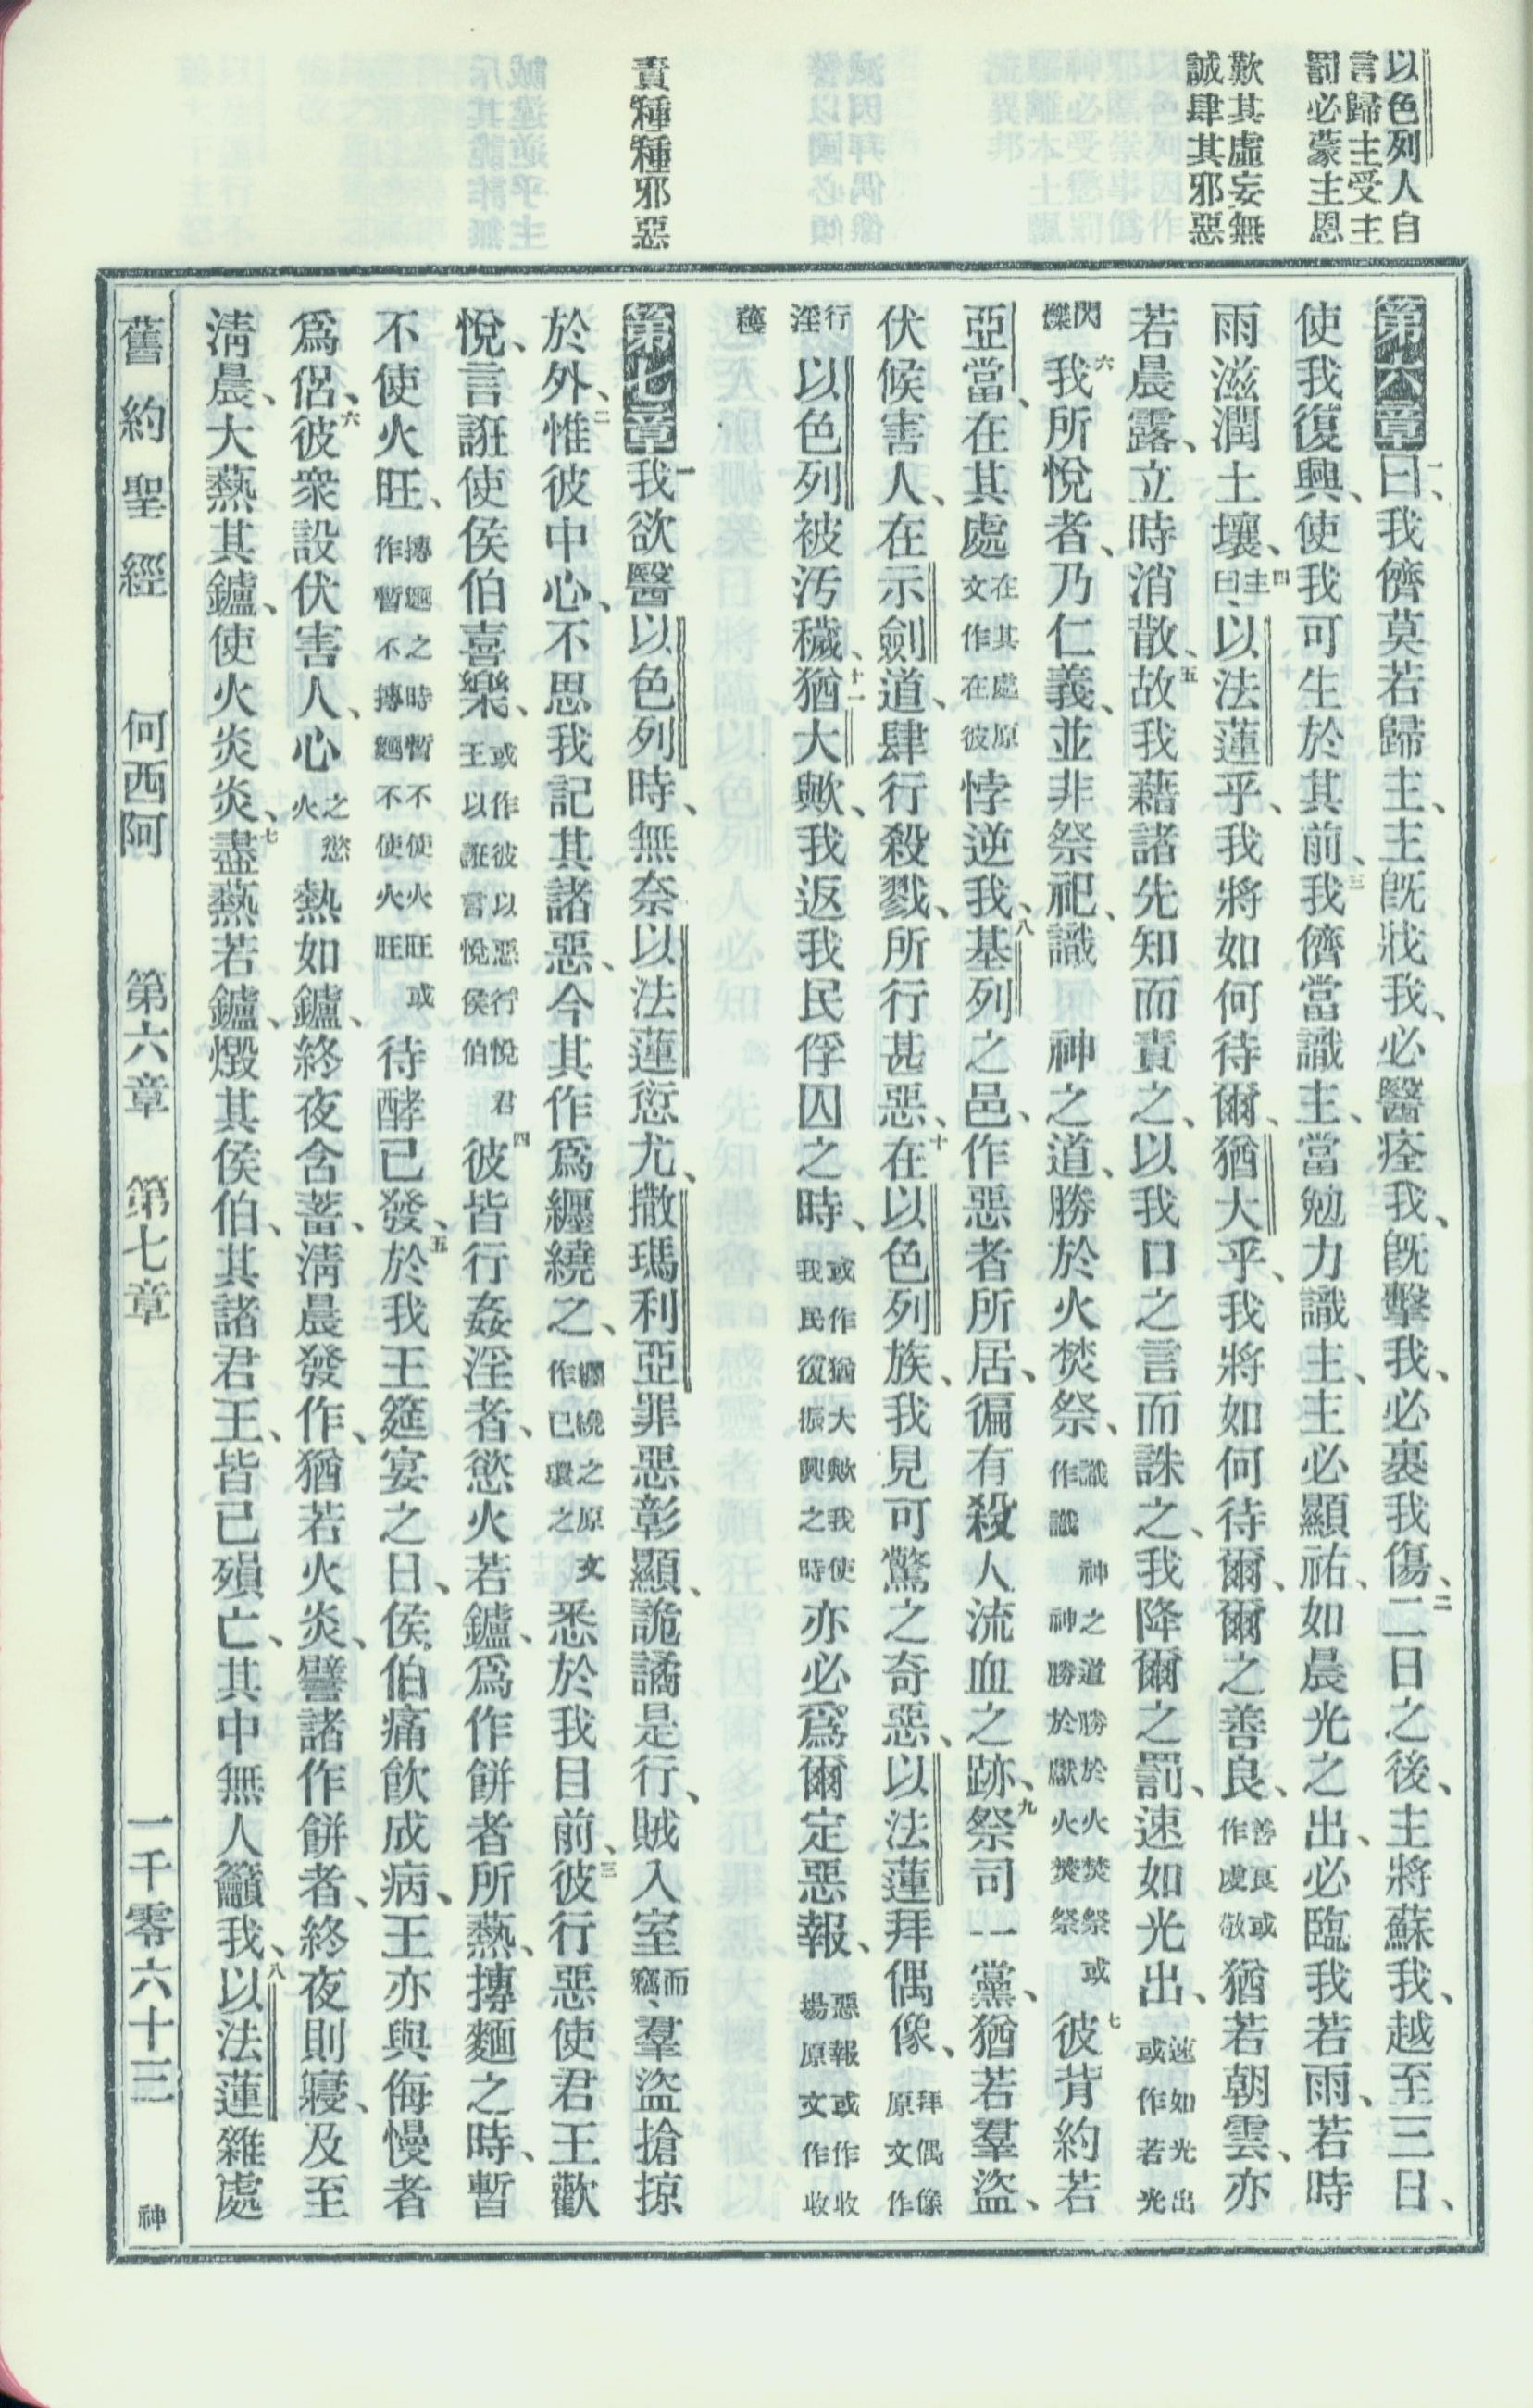 以色列人自
言歸主受主
罰必蒙主恩
歎其虛妄無
誠肆其邪惡
責種種邪惡
第六章一曰、我儕莫若歸主、主旣戕我、必醫痊我、旣擊我、必裹我傷、二二日之後、主將蘇我、越至三日、
使我復興、使我可生於其前、三我儕當識主、當勉力識主、主必顯祐、如晨光之出、必臨我若雨、若時
雨滋潤土壤、四主曰、以法蓮乎、我將如何待爾、猶大乎、我將如何待爾、爾之善良、善良或作虔敬猶若朝雲、亦
若晨露、立時消散、五故我藉諸先知而責之、以我口之言而誅之、我降爾之罰、速如光出、速如光出或作若光
閃爍六我所悅者、乃仁義、並非祭祀、識 神之道、勝於火焚祭、識 神之道勝於火焚祭或作識 神勝於獻火焚祭七彼背約若
亞當、在其處在其處原文作在彼悖逆我、八基列之邑、作惡者所居、徧有殺人流血之跡、九祭司一黨、猶若羣盜、
伏候害人、在示劍道、肆行殺戮、所行甚惡、十在以色列族、我見可驚之奇惡、以法蓮拜偶像、拜偶像原文作
行淫以色列被汚穢、十一猶大歟、我返我民俘囚之時、或作猶大歟我使我民復振興之時亦必爲爾定惡報、惡報或作場原文作收
穫
第七章一我欲醫以色列時、無奈以法蓮愆尤、撒瑪利亞罪惡彰顯、詭譎是行、賊入室而竊、羣盜搶掠
於外、二惟彼中心、不思我記其諸惡、今其作爲纏繞之、纏繞之原文作已環之悉於我目前、三彼行惡使君王歡
悅、言誑使侯伯喜樂、或作彼以惡行悅君王以誑言悅侯伯四彼皆行姦淫者、慾火若鑪、爲作餅者所爇、摶麵之時、暫
不使火旺、摶麵之時暫不使火旺或作暫不摶麵不使火旺待酵已發、五於我王筵宴之日、侯伯痛飮成病、王亦與侮慢者
爲侶、六彼衆設伏害人、心之慾火熱如鑪、終夜含蓄、淸晨發作、猶若火炎、譬諸作餅者、終夜則寢、及至
淸晨、大爇其鑪、使火炎炎、七盡爇若鑪、燬其侯伯、其諸君王、皆已殞亡、其中無人籲我、八以法蓮雜處
舊約聖經 何西阿 第六章 第七章 一千零六十三 神